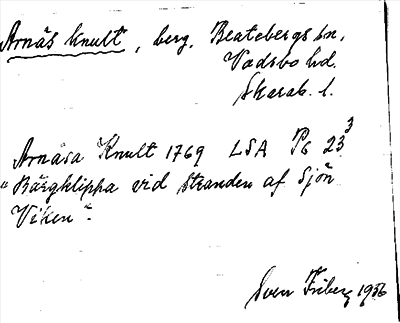 Arnäs knult, berg, Beatebergs sn,
Vadsbo hd.
Skarab. l.
Arnäsa Knult 1769 LSA P6 23³
"Bärgklippa vid stranden af Sjön
Viken".
Sven Friberg 1956